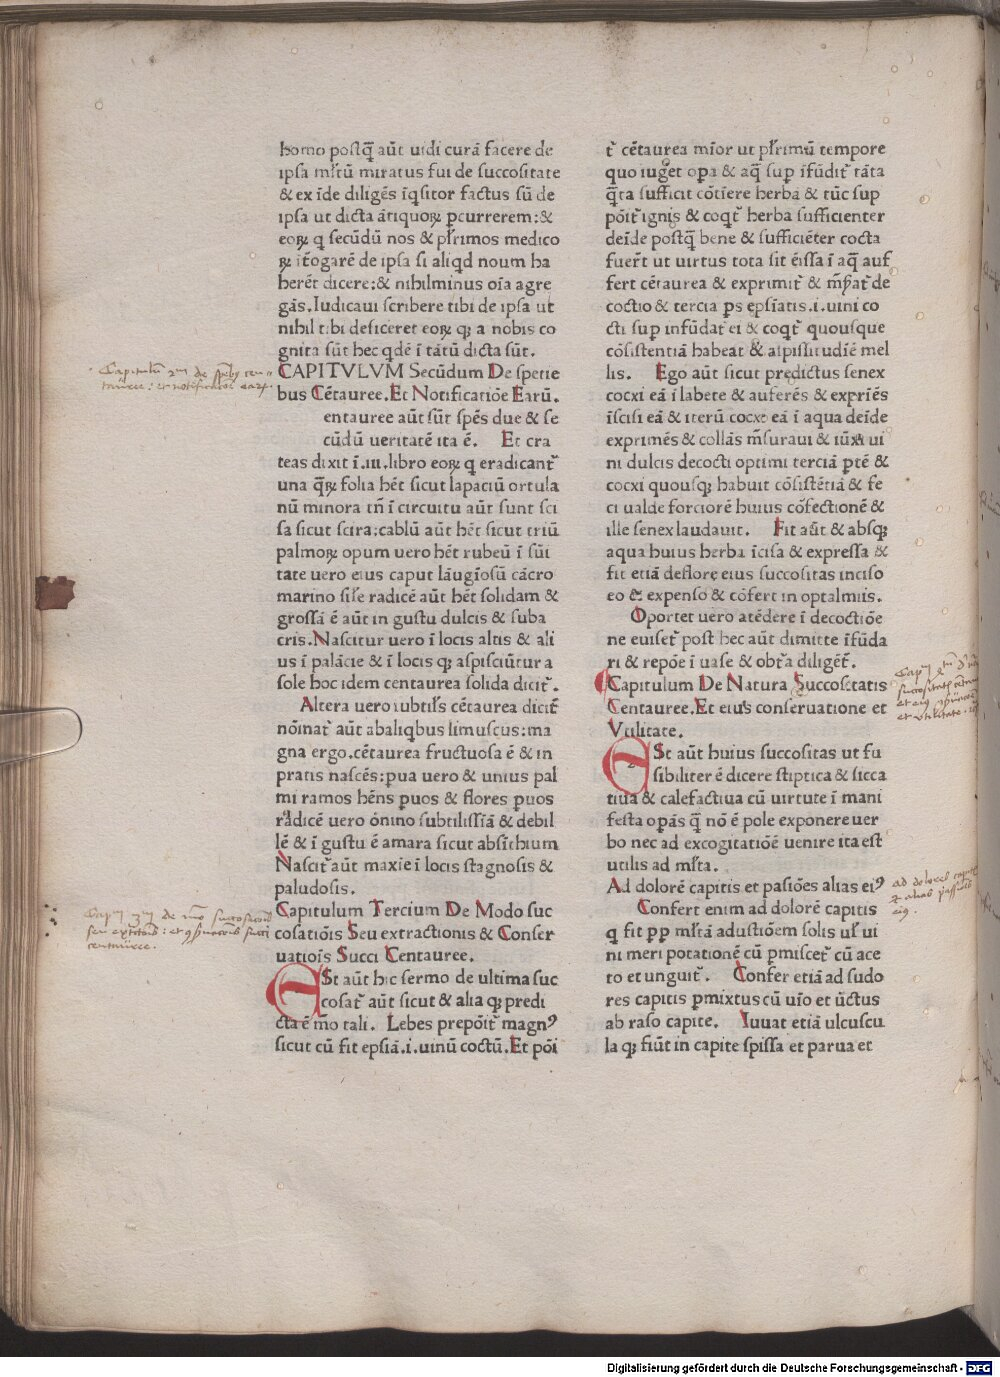 homo postq̄ aūt uidi curā facere de
ipsa mltū miratus fui de succositate
& ex īde diligēs īqsitor factus sū de
ipsa ut dicta ātiquoꝝ pcurrerem:&
eoꝝ q secūdū nos & plrimos medico
ꝝ it̄ogarē de ipsa si aliqd noum ha
berēt dicere:& nihilminus oīa agre
gās.Iudicaui scribere tibi de ipsa ut
nihil tibi deficeret eoꝝ qꝫ a nobis co
gnita sūt hec qdē ī tātū dicta sūt.
CAPITVLVM Secūdum De spetie
bus Cētauree.Et Notificatiōe Earū.
entauree aūt sūt spēs due & se
cūdū ueritatē ita ē. Et cra
teas dixit ī.iii.libro eoꝝ q eradicant̄
una q̄ꝝ folia hēt sicut lapaciū ortula
nū minora tn̄ ī circuitu aūt sunt sci
sa sicut scira:cablū aūt hēt sicut triū
palmoꝝ opum uero hēt rubeū ī sūi
tate uero eius caput lāugīosū cācro
marino sile radicē aūt hēt solidam &
grossā ē aūt in gustu dulcis & suba
cris.Nascitur uero ī locis altis & ali
us ī palācie & ī locis qꝫ aspisciūtur a
sole hoc idem centaurea solida dicit̄.
Altera uero subtils cētaurea dicit̄
nōinat̄ aūt abaliqbus limuscus:ma
gna ergo.cētaurea fructuosa ē & in
pratis nascēs:pua uero & unius pal
mi ramos hēns puos & flores puos
radicē uero ōnino subtilissiā & debil
lē & ī gustu ē amara sicut absīthium
Nascit̄ aūt maxie ī locis stagnosis &
paludosis.
Capitulum Tercium De Modo suc
cosatiōis Seu extractionis & Conser
uatiois Succi Centauree.
ESt aūt hic sermo de ultima suc
cosat̄ aūt sicut & alia qꝫ predi
cta ē mō tali. Lebes prepōit̄ magnꝰ
sicut cū fit epsiā.i.uinū coctū.Et pōi
t̄ cētaurea mīor ut plrimū tempore
quo iuget opa & aq̄ sup īfūdit̄ tāta
q̄ta sufficit cōtīere herbā & tūc sup
pōit̄ ignis & coqt̄ herba sufficienter
deīde postq̄ bene & sufficiēter cocta
fuert̄ ut uirtus tota sit ēissa ī aq̄ auf
fert cētaurea & exprimit̄ & m̄pat̄ de
coctio & tercia ps epsīatis.i.uini co
cti sup infūdat̄ ei & coqt̄ quousque
cōsistentiā habeat & aspissitudiē mel
lis. Ego aūt sicut predictus senex
cocxi eā ī labete & auferēs & expriēs
īscisi eā & iterū cocxi eā ī aqua deīde
exprimēs & collās mēsuraui & iūxi ui
ni dulcis decocti optimi terciā ptē &
cocxi quousqꝫ habuit cōsistētiā & fe
ci ualde forciorē huius cōfectionē &
ille senex laudauit. Fit aūt & absqꝫ
aqua huius herba īcisa & expressa &
fit etiā deflore eius succositas inciso
eo & expenso & cōfert in optalmiis.
Oportet uero atēdere ī decoctiōe
ne euiset̄ post hec aūt dimitte īfūda
ri & repōe ī uase & obt̄a diligēt̄.
Capitulum De Natura Succosetatis
Centauree.Et eiu's conseruatione et
Vtilitate.
ESt aūt huius succositas ut fu
sibiliter ē dicere stiptica & sicca
tiua & calefactiua cū uirtute ī mani
festa opās q̄ nō ē pole exponere uer
bo nec ad excogitatioē uenire ita est
utilis ad mlta.
Ad dolorē capitis et pasiōes alias eiꝰ
Confert enim ad dolorē capitis
q fit pp mltā adustiōem solis ul̄ ui
ni meri potationē cū pmiscet̄ cū ace
to et unguit̄. Confer etiā ad sudo
res capitis pmixtus cū uīo et ūctus
ab raso capite. Iuuat etiā ulcuscu
la qꝫ fiūt in capite spissa et parua et
Digitalisierung gefördert durch die Deutsche Forschungsgemeinschaft - DFG